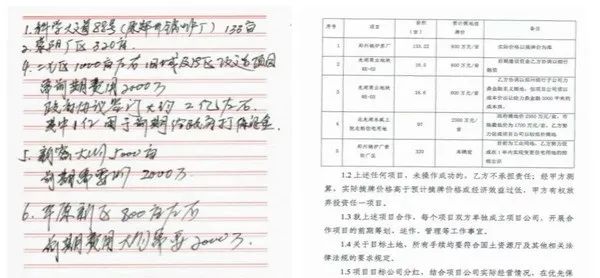 1.科学大道88号(原郑州锅炉厂) 133亩
2.荥阳厂区320亩.
4.二七区1000亩左右旧城及厂区改造项目
需前期费用2000万
政府协议签订大约2亿左右.
其中1亿用于前期给政府打保证金.
5.新密大约5000亩
前期需要 2000万
6.平原新区800亩左右
前期费用大约需要2000万
序号 项目 面积(亩) 预计摘地价格 备注
1 郑州锅炉原厂 133.22 800万元/亩 实际价格以摘牌价为准
2 龙湖南立地块 KE-02 16.5 800万元/亩
3 龙湖南立地块 KE-03 16.6 800万元/亩
4 97 2300万元/亩
5 320 未确定
1.2上述任何项目,未操作成功的,乙方不承担责任;经甲方测
算,实际摘牌价格高于预计摘牌价格或经济效益过低,甲方有权放
弃投资任一项目。
1.3就上述项目合作,每个项目双方单独成立项目公司,开展合
作项目的前期筹划、运作、管理等工作事宜。
1.4关于目标土地,所有手续均要符合国土资源厅及其他相关法
律法规的要求规定。
1.5项目目标公司分红,结合项目公司实际经营情况,在优先保